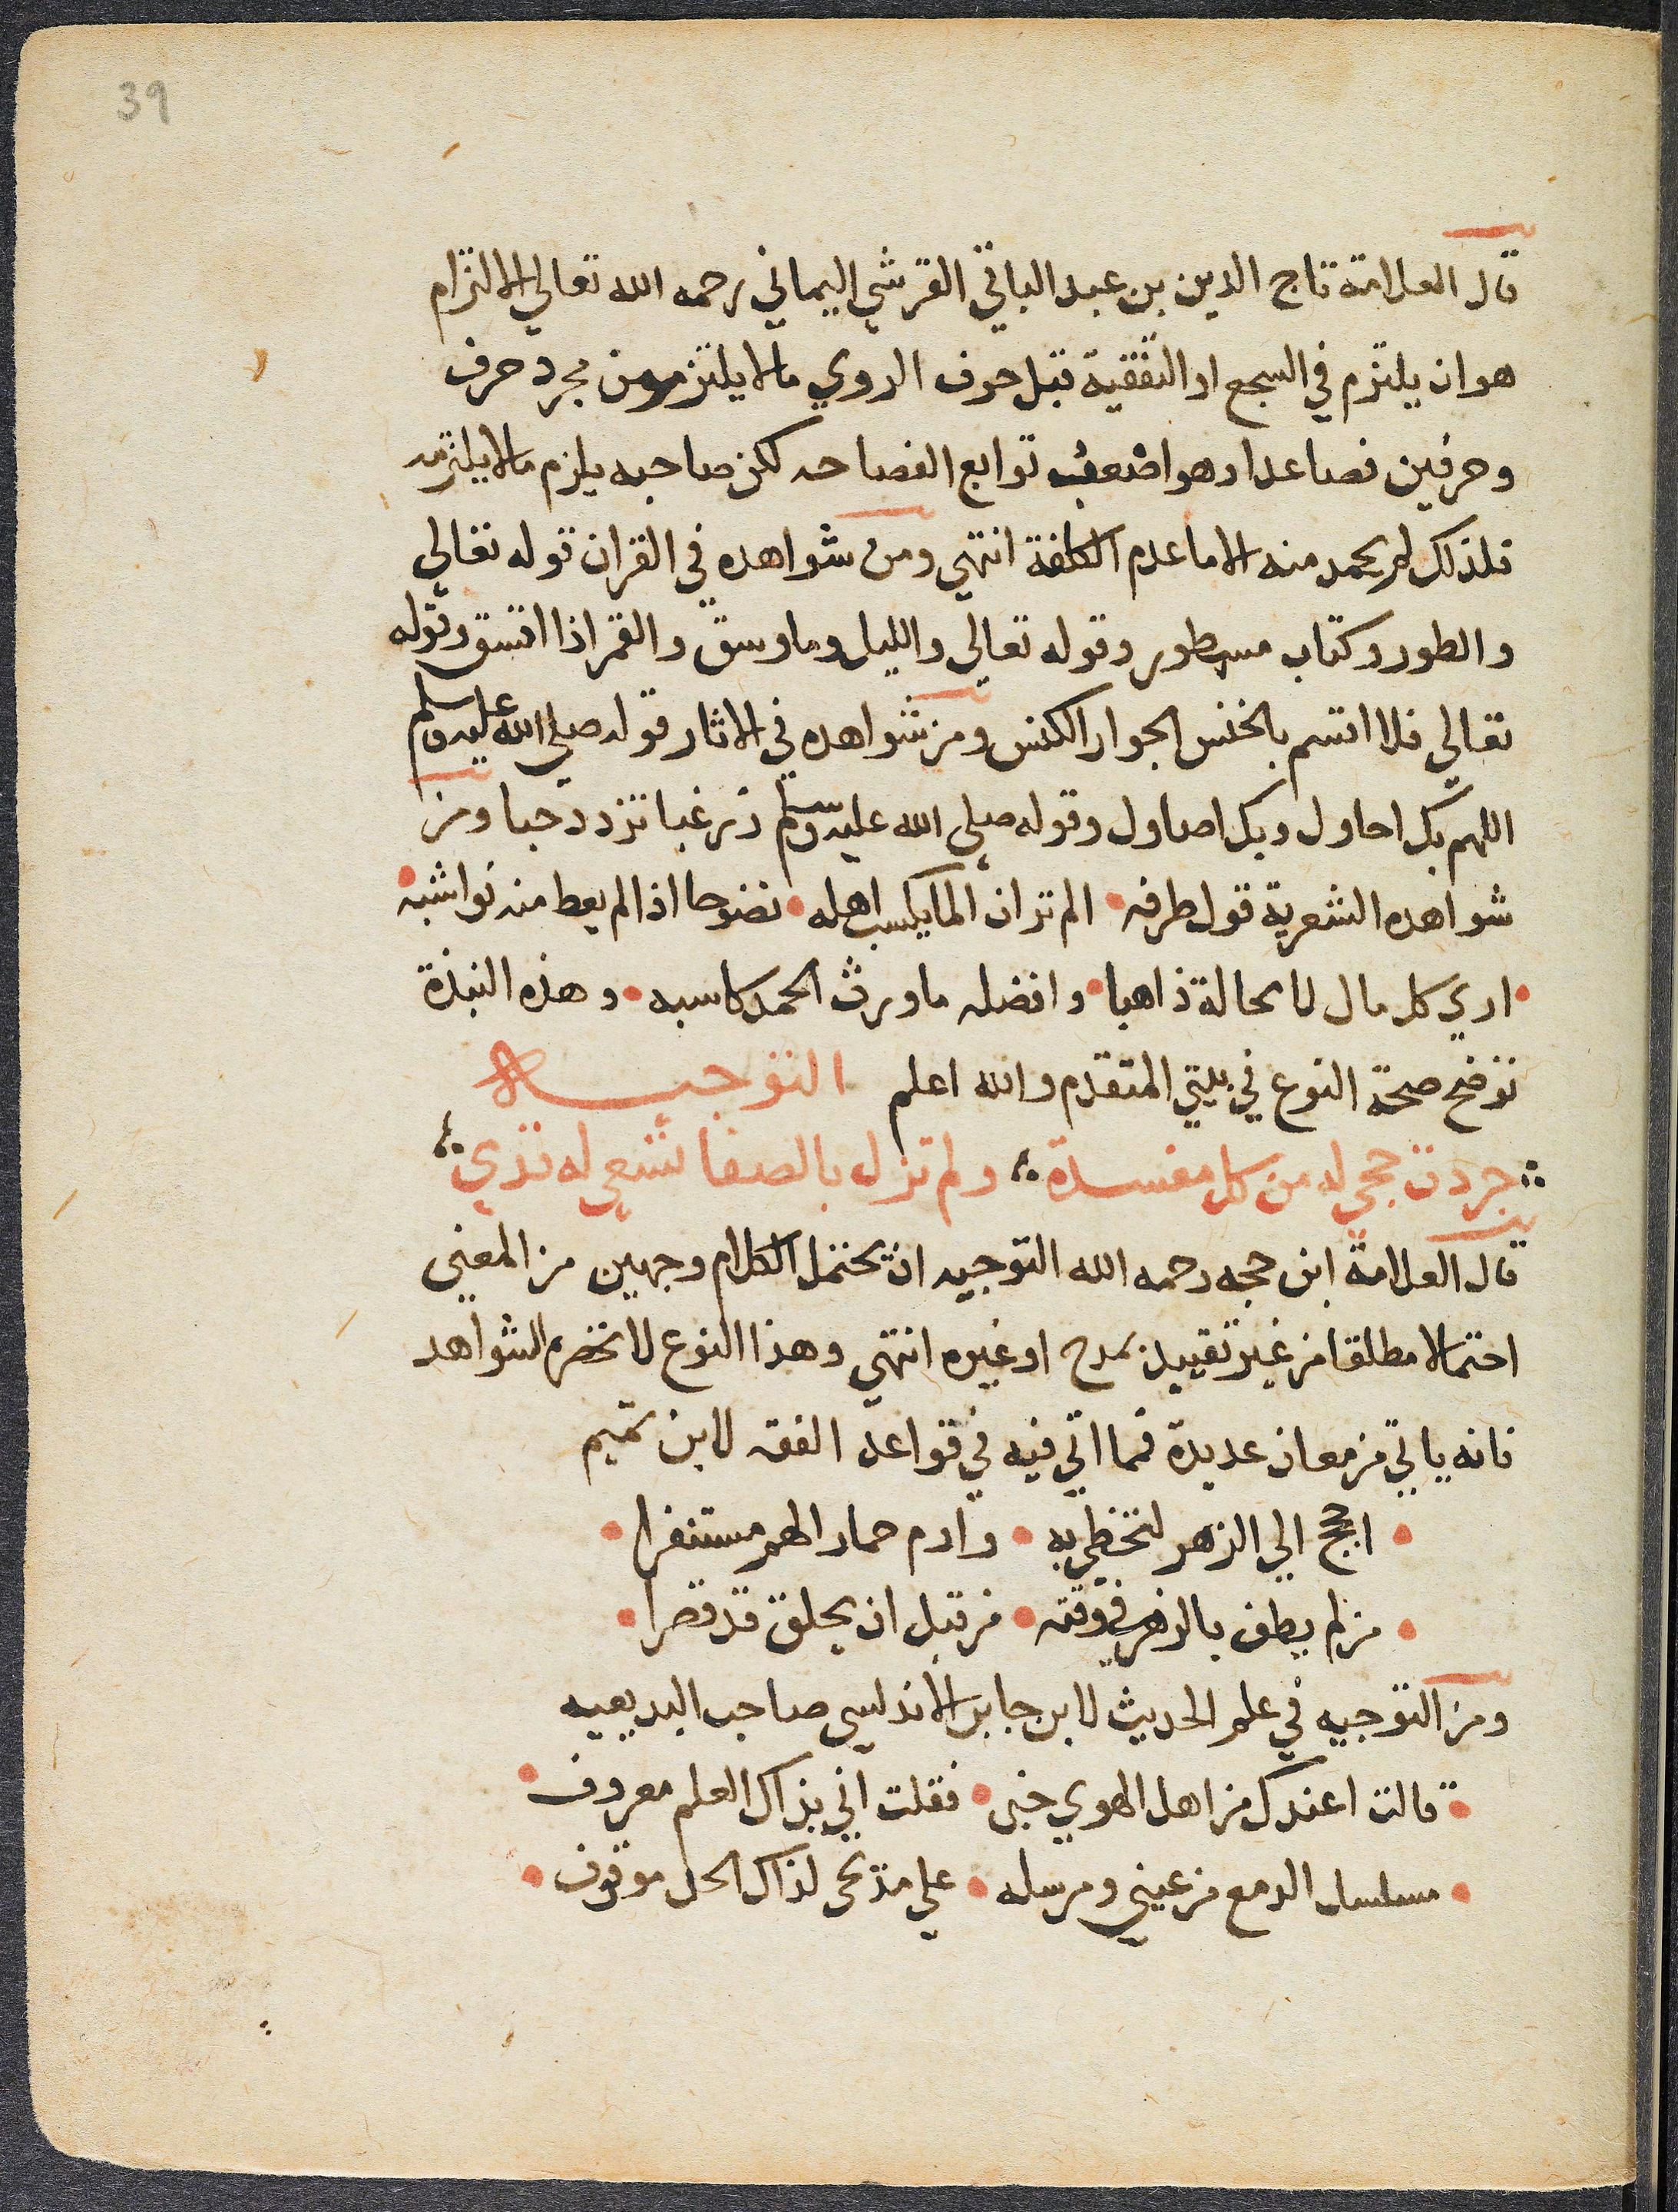 39
قال العلامة تاج الدين بن عبد الباقي القرشي اليماني رحمه الله تعالي الالتزام
هو ان يلتزم في السجع او التقفية قبل حرف الروي ما لا يلتزم من مجرد حرف
وحرفين فصاعدا وهو اضعف توابع الفصاحه لكن صاحبه يلزم ما لا يلتزمه
فلذلك لم يحمد منه الا ما عدم الكلفة انتهي ومن شواهده في القران قوله تعالي
والطور وكتاب مسطور وقوله تعالي والليل وما وسق والقمر اذا اتسق وقوله
تعالي فلا اقسم بالخنس الجوار الكنس ومن شواهده في الاثار قوله صلي الله عليه وسلم
اللهم بك احاول وبك اصاول وقوله صلي الله عليه وسلم زر غبا تزدد حبا ومن
شواهده الشعرية قول طرفه الم تر ان المايكسب اهله نضوحا اذا لم يعط منه نواشبه
اري كل مال لا محالة ذاهبا وافضله ما ورث الحمد كاسبه وهذه النبذة
توضح صحة النوع في بيتي المتقدم والله اعلم التوجيه
جردت حجي له من كل مفسدة ولم تزل بالصفا تسعي له قدي
قال العلامة ابن حجه رحمه الله التوجيه ان يحتمل الكلام وجهين من المعني
احتمالا مطلقا من غير تقييد بمدح او غيره انتهي وهذا النوع لا تحضره الشواهد
فانه ياتي من معان عديدة فما اتي فيه في قواعد الفقه لابن تميم
احجج الي الزهر لتحظي به وارم حمار الهم مستنفرا
من لم يطف بالزهر في وقته من قبل ان يحلق قد قصرا
ومن التوجيه في علم الحديث لابن جابر الاندلسي صاحب البديعيه
قالت اعندك من اهل الهوي خبر فقلت اني بذاك العلم معروف
مسلسل الدمع من عيني ومرسله علي مدبحي لذاك الحد موقوف